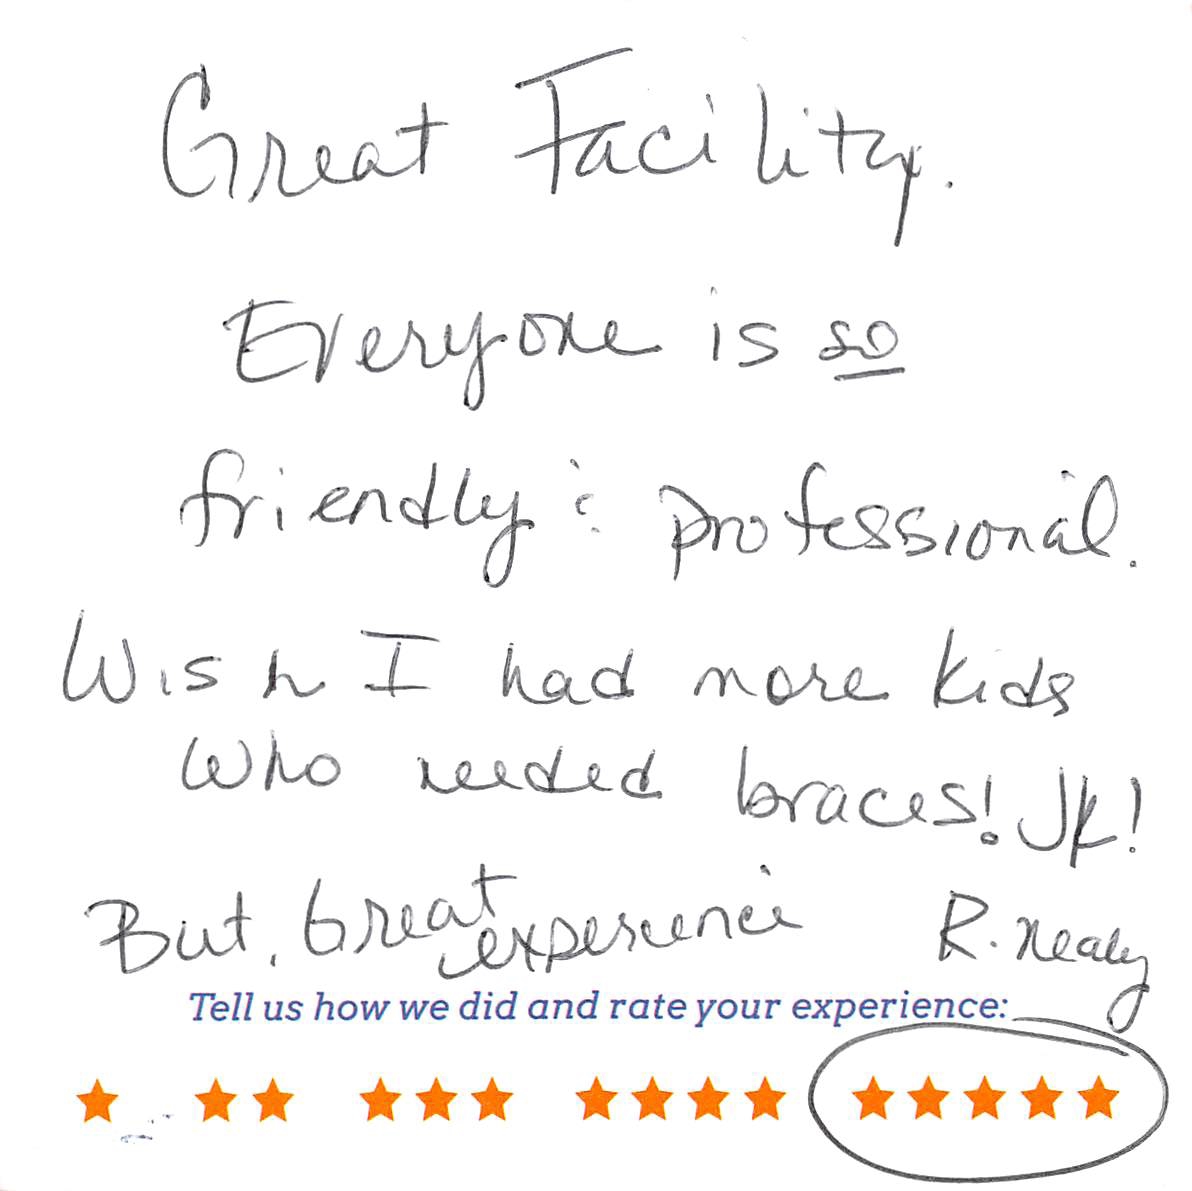 Great Facility.
Everyone is so
friendly & professional.
Wish I had more kids
who needed braces! Jk!
But, Great experience R. Nealy
Tell us how we did and rate your experience: